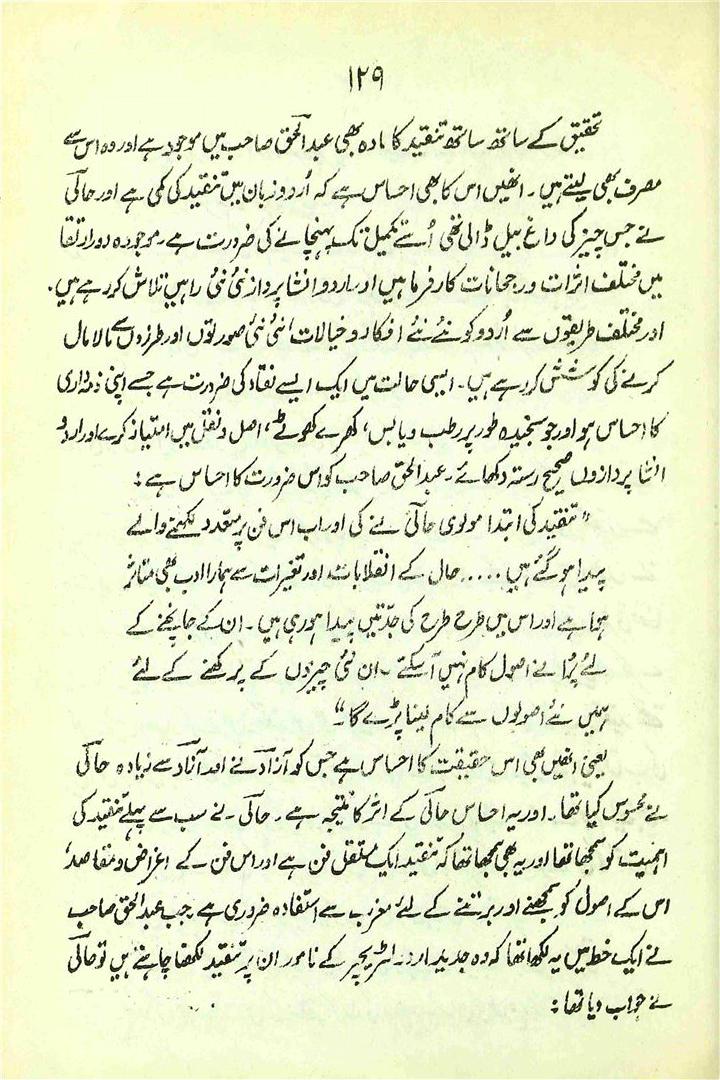 ۱۲۹
تحقیق کے ساتھ ساتھ تنقید کا مادہ بھی عبدالحق صاحب میں موجود ہے اور وہ اس سے
مصرف بھی لیتے ہیں۔ انھیں اس کا بھی احساس ہے کہ اُردو زبان میں تنقید کی کمی ہے اور حالؔی
نے جس چیز کی داغ بیل ڈالی تھی اُسے تکمیل تک پہنچانے کی ضرورت ہے۔ موجودہ دور ارتقا
میں مختلف اثرات و رجحانات کارفرما ہیں اور اردو انشا پرداز نئی نئی راہیں تلاش کر رہے ہیں۔
اور مختلف طریقوں سے اُردو کو نئے نئے افکار و خیالات، نئی نئی صورتوں اور طرزوں سے مالا مال
کرنے کی کوشش کر رہے ہیں۔ ایسی حالت میں ایک ایسے نقاد کی ضرورت ہے جسے اپنی ذمہ داری
کا احساس ہو اور جو سنجیدہ طور پر رطب و یابس، کھرے کھوٹے، اصل و نقل میں امتیاز کرے اور اردو
انشا پردازوں صحیح رستہ دکھائے۔ عبدالحق صاحب کو اس ضرورت کا احساس ہے:
"تنقید کی ابتدا مولوی حالؔی نے کی اور اب اس فن پر متعدد لکھنے والے
پیدا ہو گئے ہیں..... حال کے انقلابات اور تغیرات سے ہمارا ادب بھی متاثر
ہوا ہے اور اس میں طرح طرح کی جدّتیں پیدا ہو رہی ہیں۔ ان کے جانچنے کے
لئے پُرانے اصول کام نہیں آ سکتے۔ ان نئی چیزوں کے پرکھنے کے لئے
ہمیں نئے اصولوں سے کام لینا پڑے گا۔"
یعنی انھیں بھی اس حقیقت کا احساس ہے جس کو آزادؔ نے اور آزادؔ سے زیادہ حالؔی
نے محسوس کیا تھا۔ اور یہ احساس حالؔی کے اثر کا نتیجہ ہے۔ حالؔی نے سب سے پہلے تنقید کی
اہمیت کو سمجھا تھا اور یہ بھی سمجھا تھا کہ تنقید ایک مستقل فن ہے اور اس فن کے اغراض و مقاصد،
اس کے اصول کو سمجھنے اور برتنے کے لئے مغرب سے استفادہ ضروری ہے جب عبدالحق صاحب
نے ایک خط میں یہ لکھا تھا کہ وہ جدید اردو لٹریچر کے نامور ان پر تنقید لکھنا چاہتے ہیں تو حالؔی
نے جواب دیا تھا: